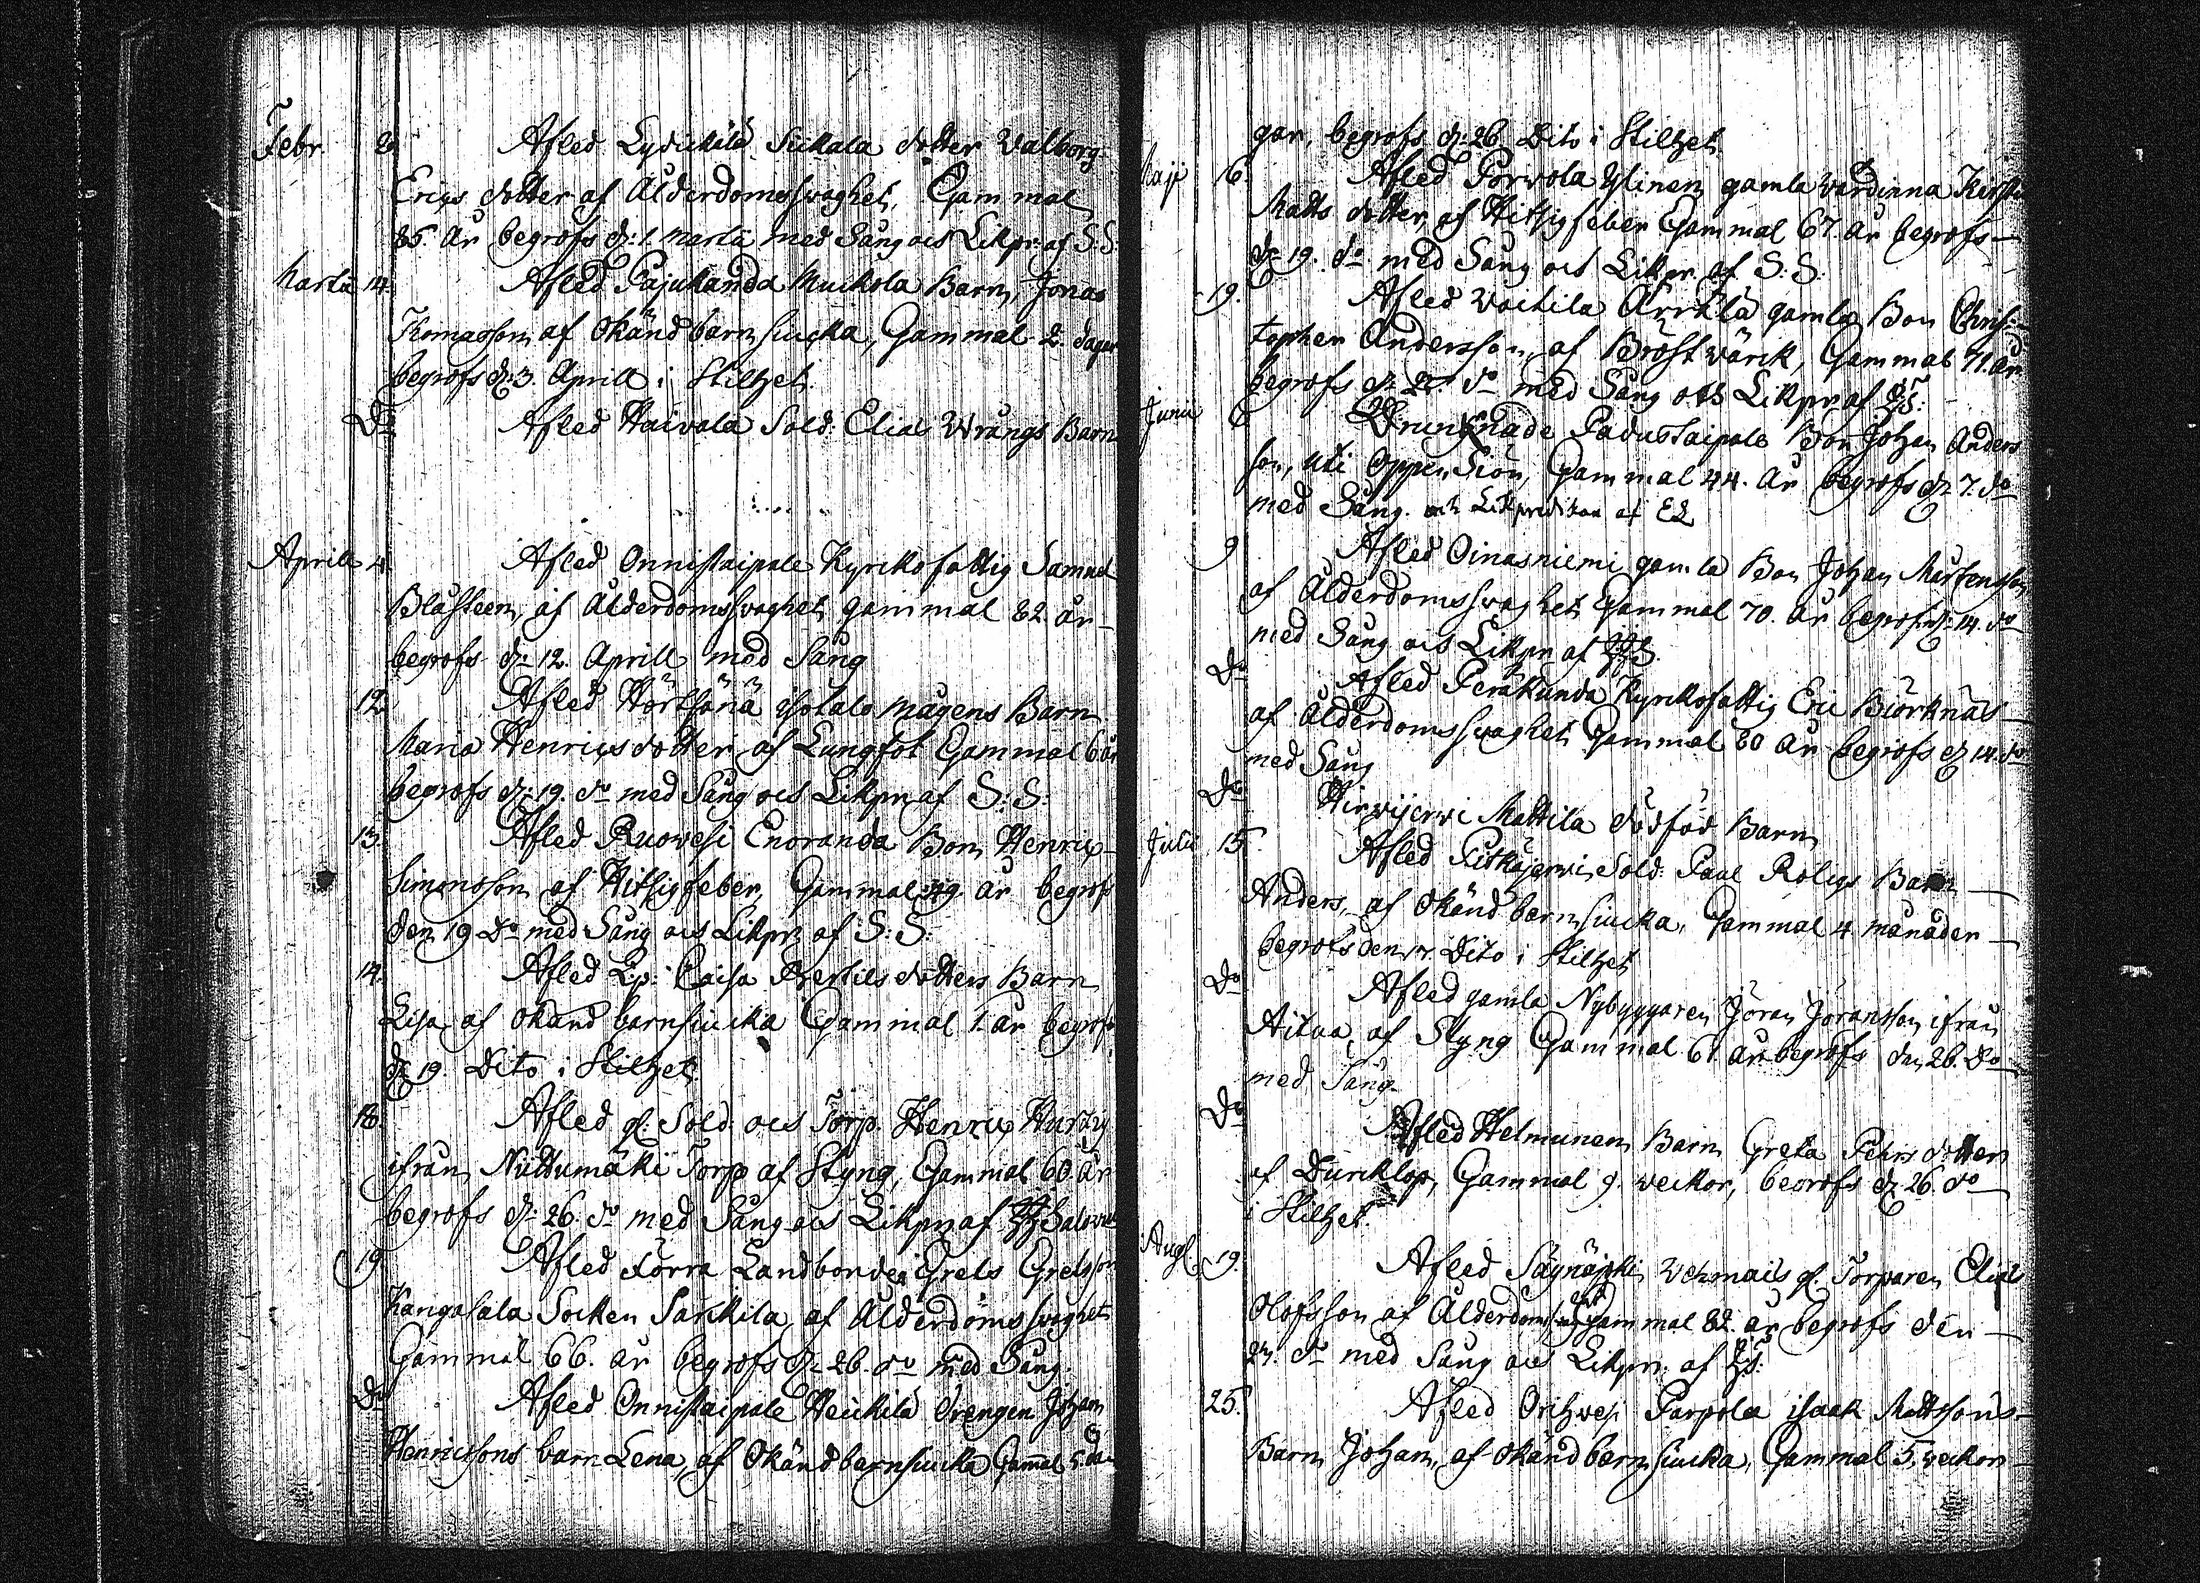 Febr. 2 Afled Lydickälä Suckala dotter Walborg
Erichs dotter af Ålderdomsswaghet, Gammal
85 år begrofs d: 1. Martii med Sång och Likpr: af S:S:
Martii 14. Afled Pajukanda Muckola Barn, Jonas
Thomasson, af Okänd barnsiucka, Gammal 2 dagar
begrofs d: 3. Aprill i Stilhet.
Do Afled Haivala Sold: Elias Wrångs Barn
Aprill 4. Afled Onnistaipale Kyrckofattig Samuel
Blåsteen, af Ålderdomsswaghet gammal 82. år
begrofs d: 12. Aprill med Sång
12. Afled Hörtsänä Isotalo mågens Barn
Maria Henrichsdotter af Lungsot Gammal 6 år
begrofs d: 19. do med Sång och Likpr: af S:S:
13. Afled Ruowesi Enoranda Bon, Henrich
Simonsson af Hitsigfeber, Gammal 49. år begrofs
den 19 Do med Sång och Likpr: af S:S:
14. Afled Lp: Caisa Bertils dotters Barn
Lisa, af Okänd barnsiucka Gammal 1. år begrofs
d: 19. Dito i Stilhet.
18. Afled gl: Sold och Torp. Henrich Hurtig
ifrån Nuttumäki Torp af Styng, Gammal 60 år
begrofs d: 26. do med Sång och Likpr: af
19 Afled Förra Landbonden Grels Grelsson
Kangasala Socken Sarckila, af Ålderdomsswaghet
Gammal 66. år begrofs d: 26. do med Sång.
Do Afled Onnistaipale Heickilä drengen Johan
Henricssons barn Lena, af Okänd barnsiucka Gamal 5. da
gar, begrofs d: 26 Dito i Stilhet
Maji 16. Afled Porvola Ylinen gamla wärdinna Kirstin
Matts dotter, af Hitsigfeber Gammal 67. år begrofs
d: 19. do med Sång och Likpr: af S:S:
19. Afled Wachila Ärrälä gamla Bon Chris-
topher Andersson, af Bröstwärck, Gammal 71. år
begrofs d: do med Sång och Likpr: af
Junii 6 Drunknade Padustaipale Bon Johan Anders
son, uti öppen Siön, Gammal 44. år begrofs d: 7. do
med Sång och Likpredikan af EL
9 Afled Oinasniemi gamla Bon Johan Mårtensson
af Ålderdomsswaghet Gammal 70. år begrofs d: 14. do
med Sång och Likpr: af
Do Afled Peräkunda Kyrckofattig Eric Biörknäs
af Ålderdomsswaghet Gammal 80 år begrofs d: 14. do
med Sång
Do Hirwijerwi Mattila dödföd Barn
Julii 15. Afled Pitkäjerwi Sold: Paul Roligs Barn
Anders, af Okänd barnsiucka, Gammal 4 månader
begrofs den 17. Dito i Stilhet
Do Afled gamla Nybyggaren Jöran Jöransson ifrån
Aitaa, af Styng Gammal 61 år begrofs den 26. Do
med Sång.
Do Afled Helmunen Barn Greta Pehrs dotter
af Durcklop, Gammal 9. weckor, begrofs d: 26. do
i Stilhet.
Aug. 19. Afled Sägnäjerki Wehmais gl. Torparen Elias
Olofsson af Ålderdomsswaghet Gammal 82. år begrofs den
27. do med Sång och Likpr: af
25. Afled Orihwesi Parpola Isaak Mattsons
Barn Johan, af Okänd barnsiucka, Gammal 5. weckor